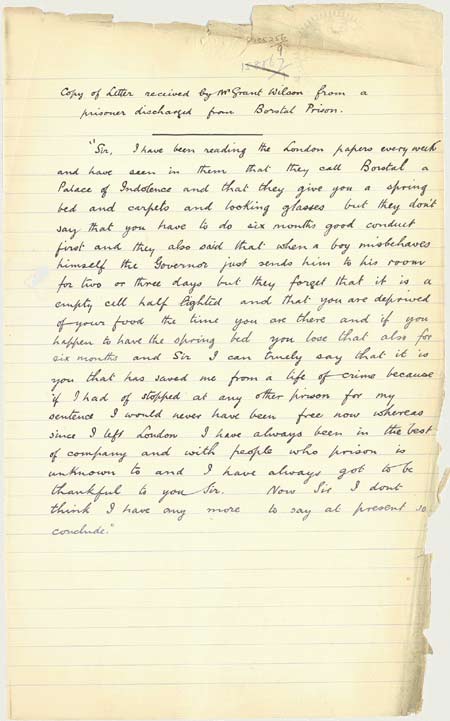 9
Copy of Letter received by Mr Grant Wilson from a
prisoner discharged from Borstal Prison.
"Sir, I have been reading the London papers every week
and have seen in them that they call Borstal a
Palace of Indolence and that they give you a spring
bed and carpets and looking glasses but they don't
say that you have to do six months good conduct
first and they also said that when a boy misbehaves
himself the Governor just sends him to his room
for two or three days but they forget that it is a
empty cell half lighted and that you are deprived
of your food the time you are there and if you
happen to have the spring bed you lose that also for
six months and Sir I can truely say that it is
you that has saved me from a life of crime because
if I had of stopped at any other prison for my
sentence I would never have been free now whereas
since I left London I have always been in the best
of company and with people who prison is
unknown to and I have always got to be
thankful to you Sir. Now Sir I dont
think I have any more to say at present so
conclude."